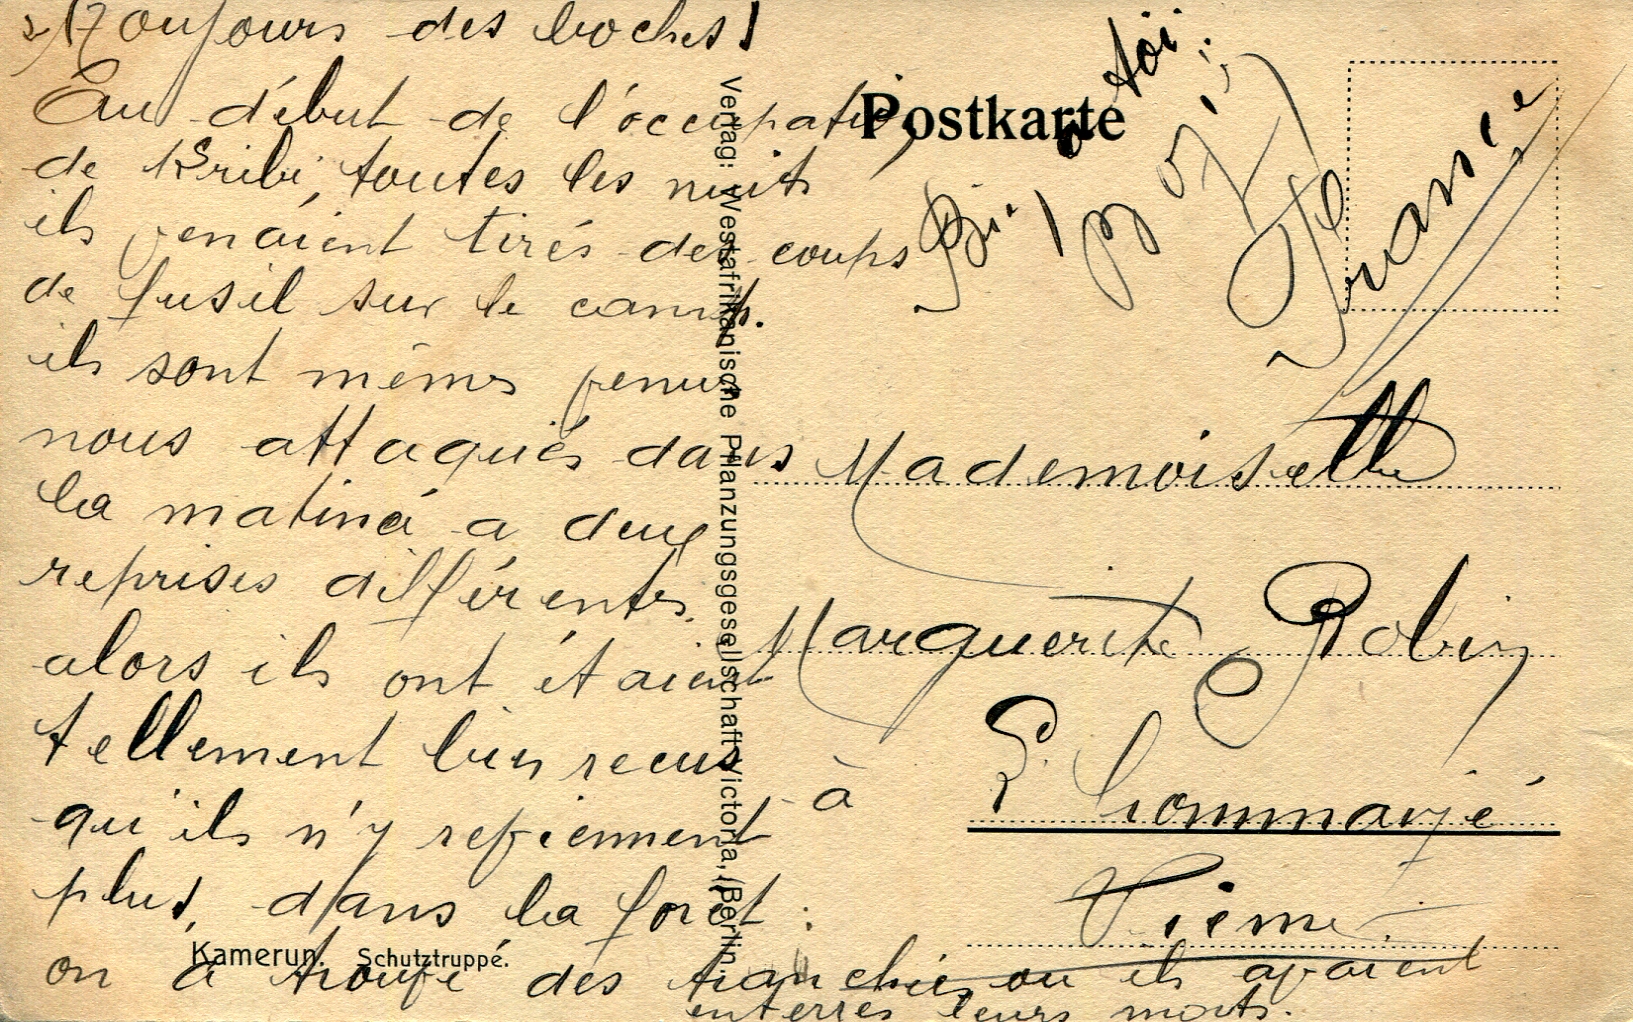 2) Toujours des boches!
Au début de l'occupatio,
de Kribi, toutes les nuits
ils venaient tirés des coups
de fusil sur le camp.
ils sont mêmes venus
nous attaqués dans
la matiné a deux
reprises différentes.
alors ils ont étaient
tellement bien recus
qu'ils n'y revienment
plus, dans la forêt :
on a trouvé des tranchées ou ils avaient
enterrés leurs morts.
Postkarte
a toi
France
Mademoiselle
Marguerite Robin
à
Vienne
Verlag: Westafrikanische Pflanzungsgesellschaft Victoria, (Berlin.
Kamerun. Schutztruppé.